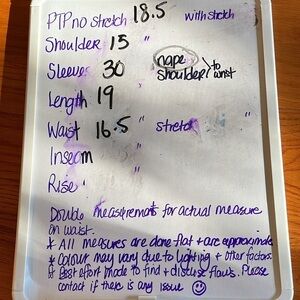 PTP no stretch 18.5 with stretch
Shoulder 15 "
Sleeve 30 nape shoulder to wrist
Length 19
Waist 16.5 " stretch
Inseam "
Rise "
Double measurements for actual measure
on waist.
* All measures are done flat + are approximate
* Colour may vary due to lighting + other factors
* Best effort made to find + disclose flaws. Please
contact if there is any issue ☺